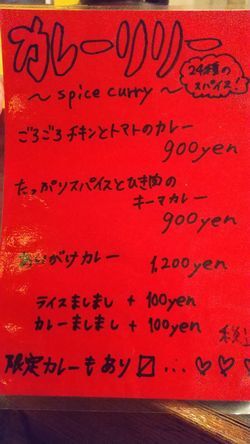 カレーリリー
24種の
スパイス!
～spice curry～
ごろごろチキンとトマトのカレー
900yen
たっぷりスパイスとひき肉の
キーマカレー
900yen
あいがけカレー 1,200yen
ライスましまし + 100yen
カレーましまし + 100yen
限定カレーもあり〼...♡♡♡